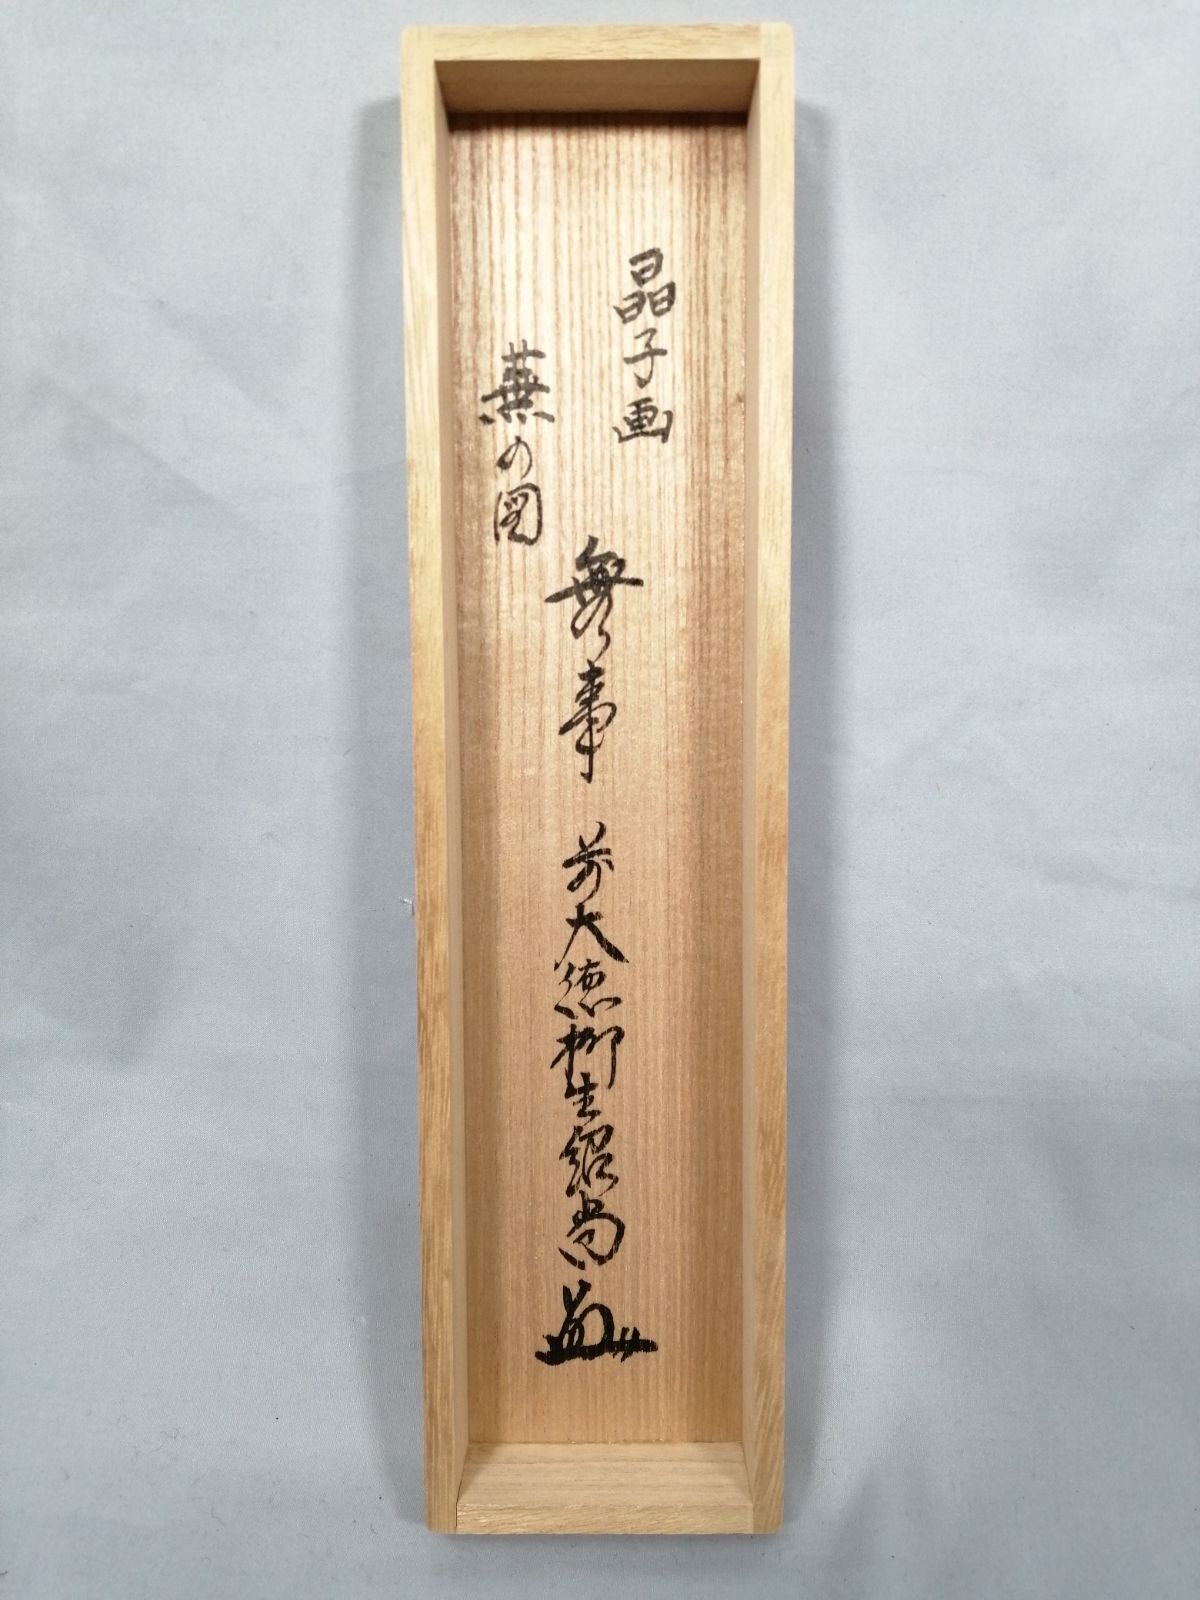 晶子画
蕪の図
無事 前大徳柳生紹尚